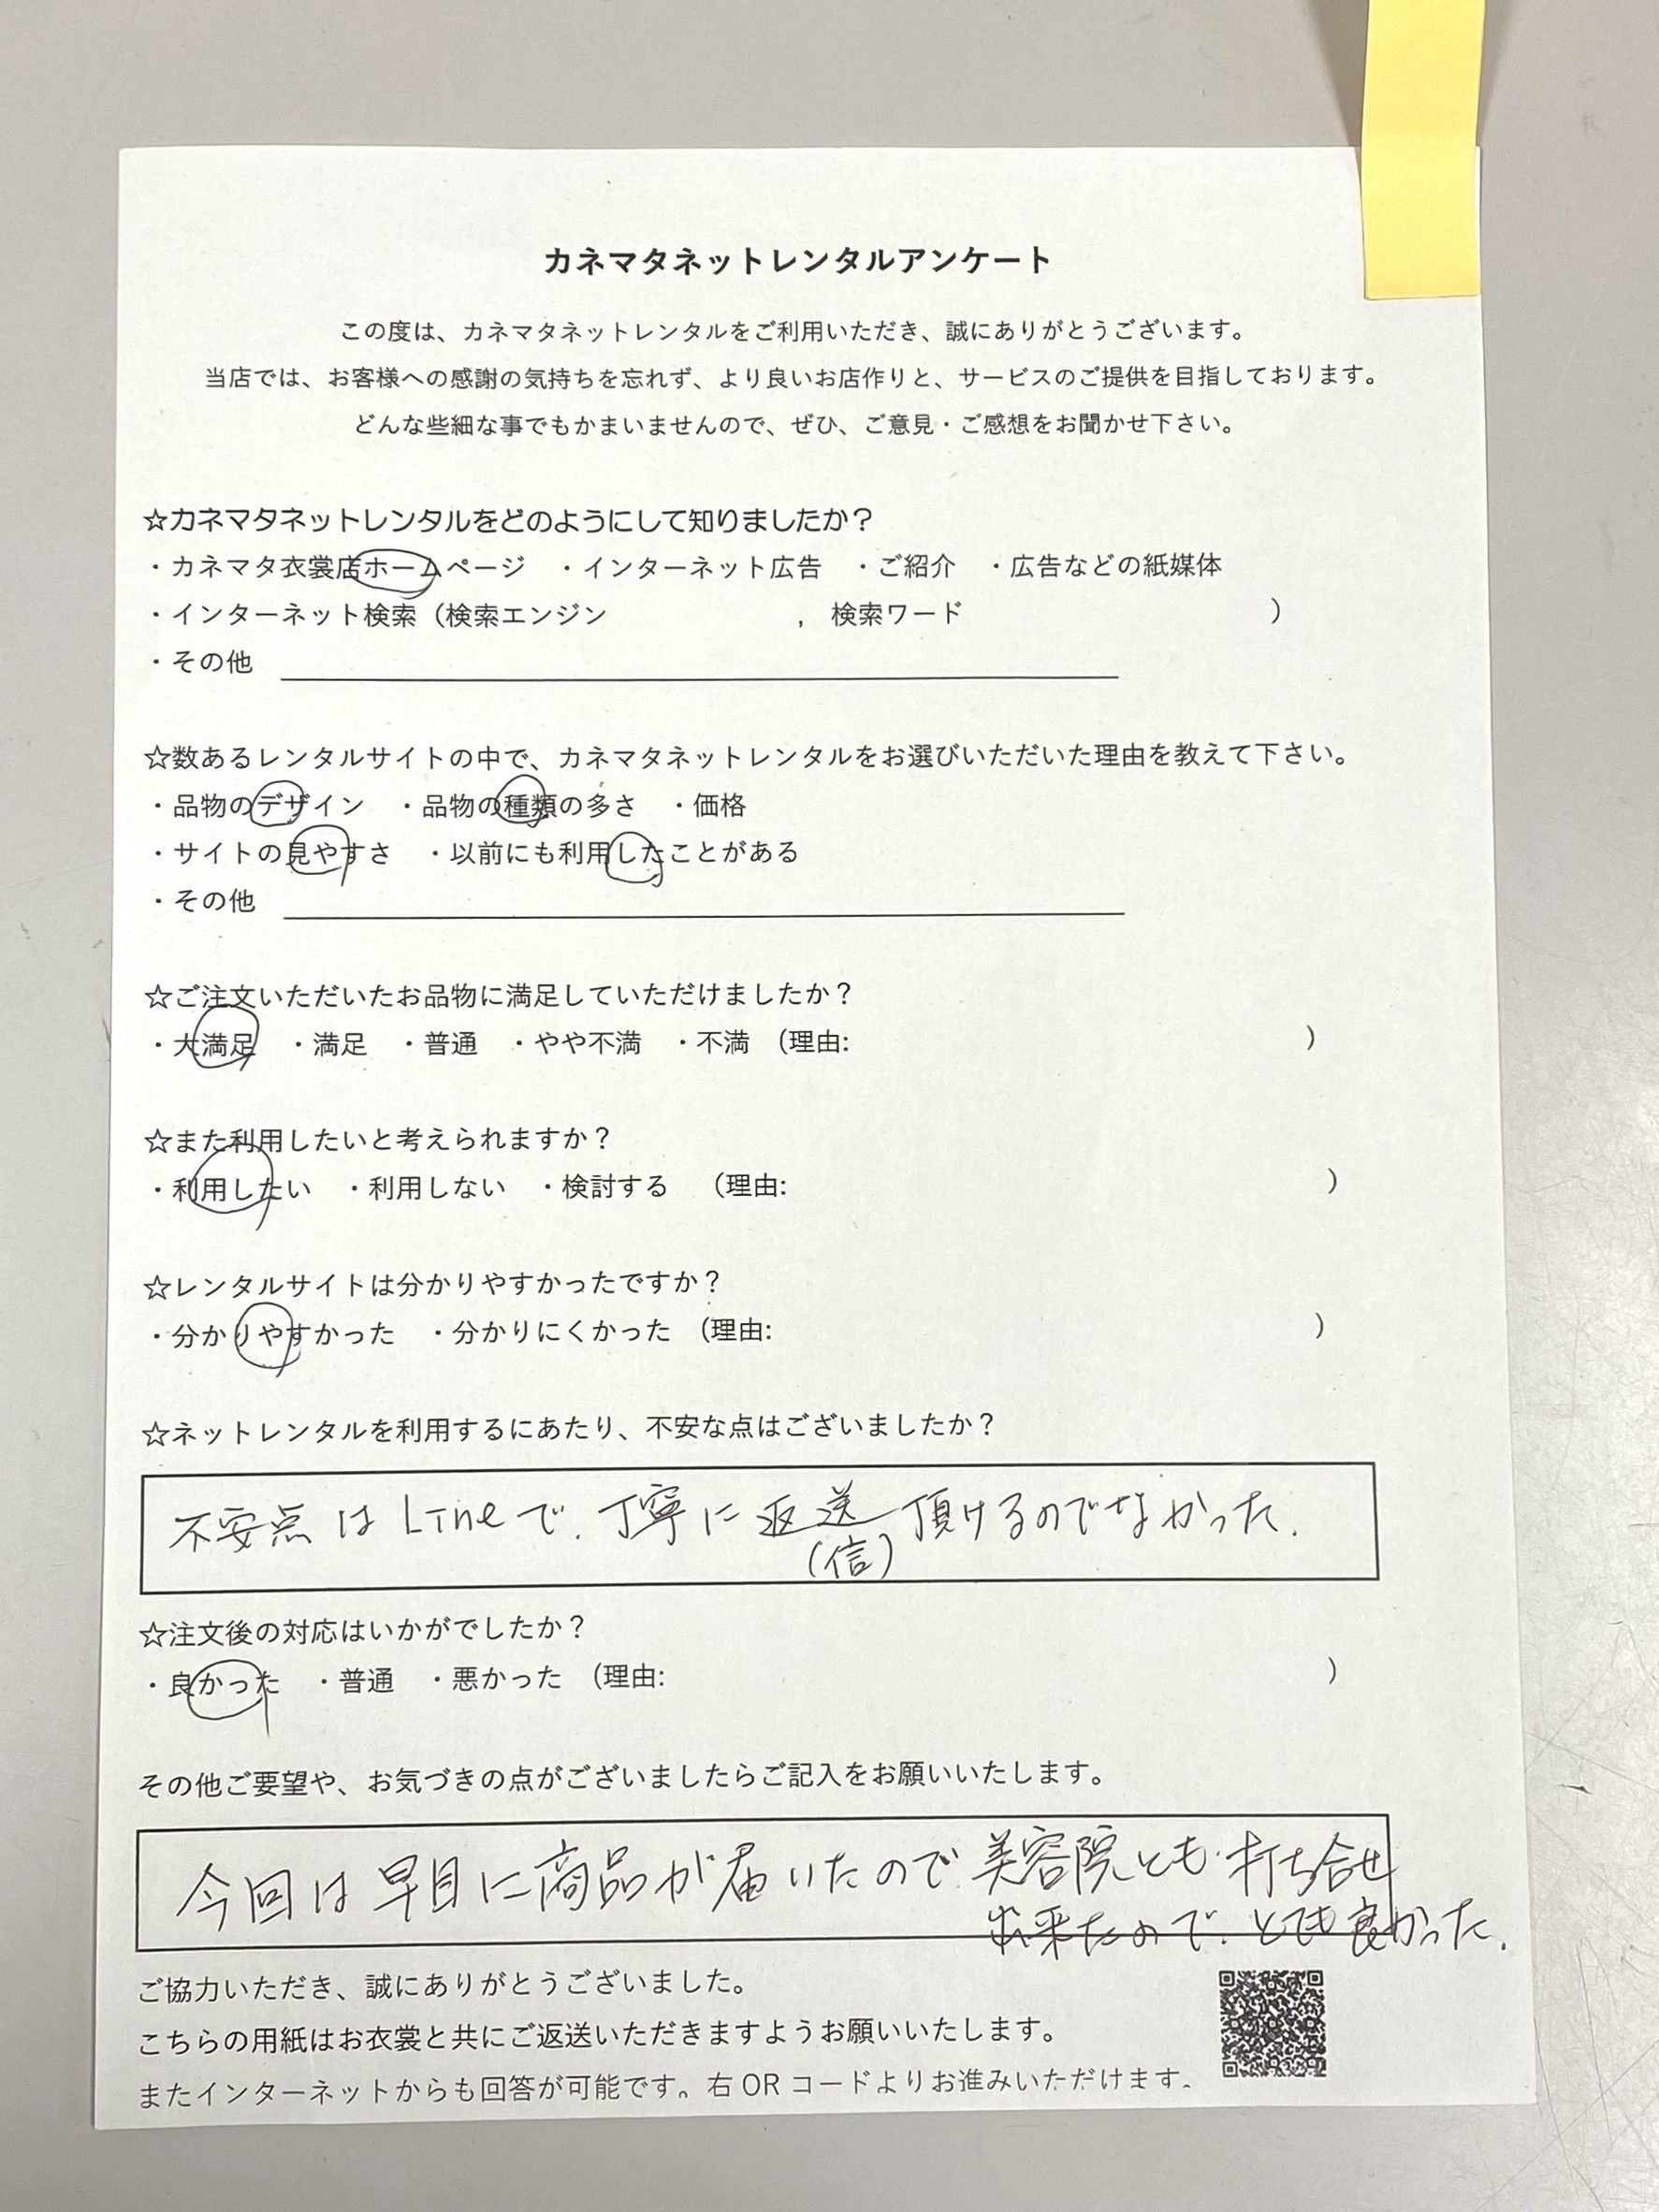 カネマタネットレンタルアンケート
この度は、カネマタネットレンタルをご利用いただき、誠にありがとうございます。
当店では、お客様への感謝の気持ちを忘れず、より良いお店作りと、サービスのご提供を目指しております。
どんな些細な事でもかまいませんので、ぜひ、ご意見・ご感想をお聞かせ下さい。
☆カネマタネットレンタルをどのようにして知りましたか？
・カネマタ衣裳店ホームページ ・インターネット広告 ・ご紹介 ・広告などの紙媒体
・インターネット検索（検索エンジン ， 検索ワード ）
・その他
☆数あるレンタルサイトの中で、カネマタネットレンタルをお選びいただいた理由を教えて下さい。
・品物のデザイン ・品物の種類の多さ ・価格
・サイトの見やすさ ・以前にも利用したことがある
・その他
☆ご注文いただいたお品物に満足していただけましたか？
・大満足 ・満足 ・普通 ・やや不満 ・不満 （理由: ）
☆また利用したいと考えられますか？
・利用したい ・利用しない ・検討する （理由: ）
☆レンタルサイトは分かりやすかったですか？
・分かりやすかった ・分かりにくかった （理由: ）
☆ネットレンタルを利用するにあたり、不安な点はございましたか？
不安点は Lineで、丁寧に返送頂けるのでなかった.
(信)
☆注文後の対応はいかがでしたか？
・良かった ・普通 ・悪かった （理由: ）
その他ご要望や、お気づきの点がございましたらご記入をお願いいたします。
今回は早目に商品が届いたので美容院とも打ち合せ
出来たので、とても良かった.
ご協力いただき、誠にありがとうございました。
こちらの用紙はお衣裳と共にご返送いただきますようお願いいたします。
またインターネットからも回答が可能です。右 QR コードよりお進みいただけます。